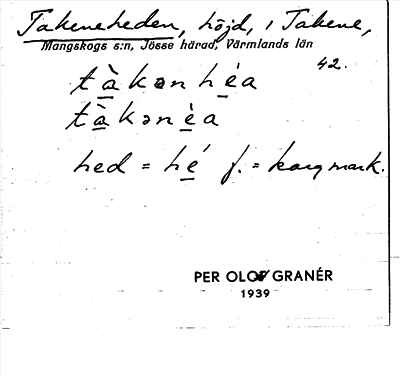 Takeneheden, höjd, i Takene,
Mangskogs s:n, Jösse härad, Värmlands län
42.
tàkənhéa
tàkənèa
hed = hé f. = karg mark.
PER OLOF GRANÉR
1939